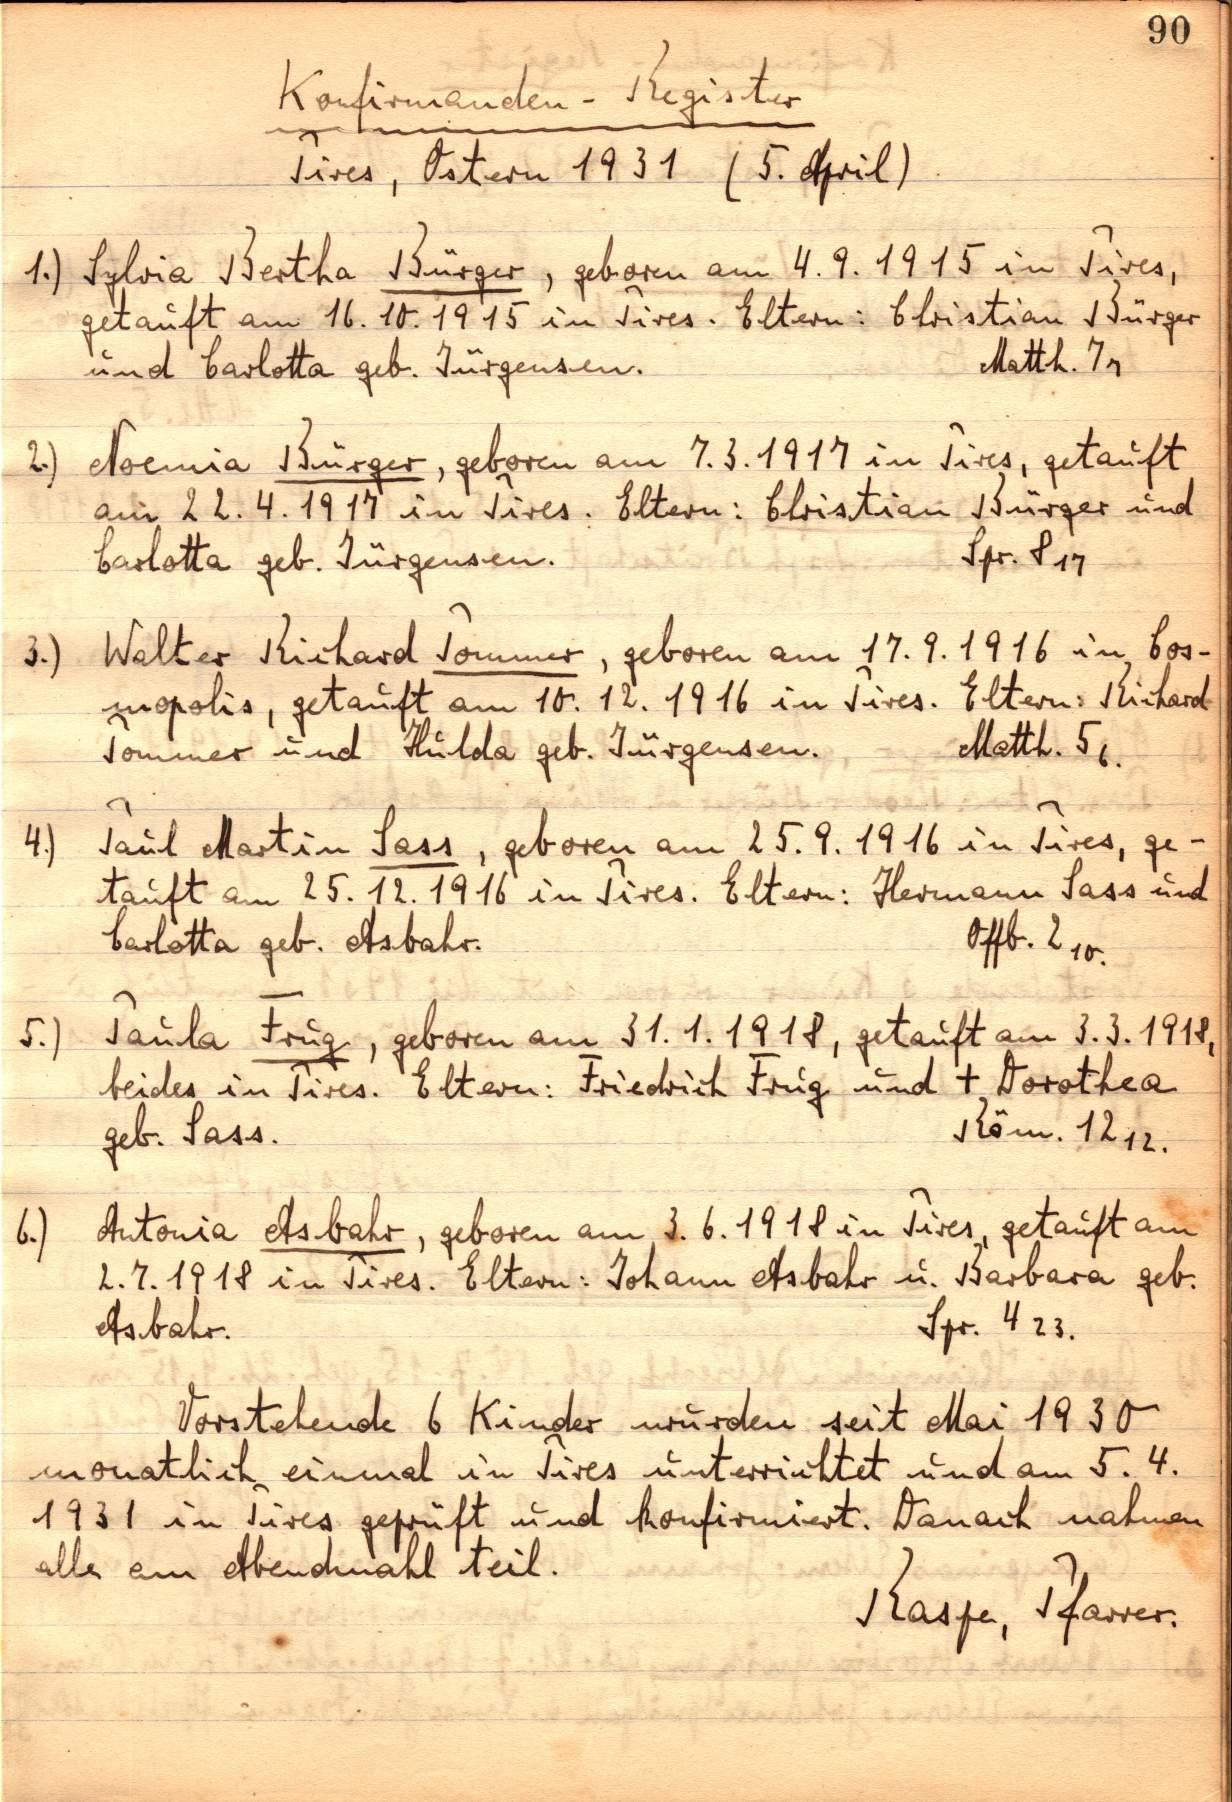 90
Konfirmanden - Register
Pires, Ostern 1931 (5. April)
1.) Sylvia Bertha Bürger, geboren am 4.9.1915 in Pires,
getauft am 16.10.1915 in Pires. Eltern: Christian Bürger
und Carlotta geb. Jürgensen. Matth. 7 7
2.) Noemia Bürger, geboren am 7.3.1917 in Pires, getauft
am 22.4.1917 in Pires. Eltern: Christian Bürger und
Carlotta geb. Jürgensen. Spr. 8 17
3.) Walter Richard Tommer, geboren am 17.9.1916 in Cos-
mopolis, getauft am 10.12.1916 in Pires. Eltern: Richard
Tommer und Hulda geb. Jürgensen. Matth. 5 6.
4.) Paul Martin Sass, geboren am 25.9.1916 in Pires, ge-
tauft am 25.12.1916 in Pires. Eltern: Hermann Sass und
Carlotta geb. Asbahr. Offb. 2 10.
5.) Paula Frug, geboren am 31.1.1918, getauft am 3.3.1918,
beides in Pires. Eltern: Friedrich Frug und + Dorothea
geb. Sass. Röm. 12 12.
6.) Antonia Asbahr, geboren am 3.6.1918 in Pires, getauft am
2.7.1918 in Pires. Eltern: Johann Asbahr u. Barbara geb.
Asbahr. Spr. 4 23.
Vorstehende 6 Kinder wurden seit Mai 1930
monatlich einmal in Pires unterrichtet und am 5.4.
1931 in Pires geprüft und konfirmiert. Danach nahmen
alle am Abendmahl teil.
Raspe, Pfarrer.